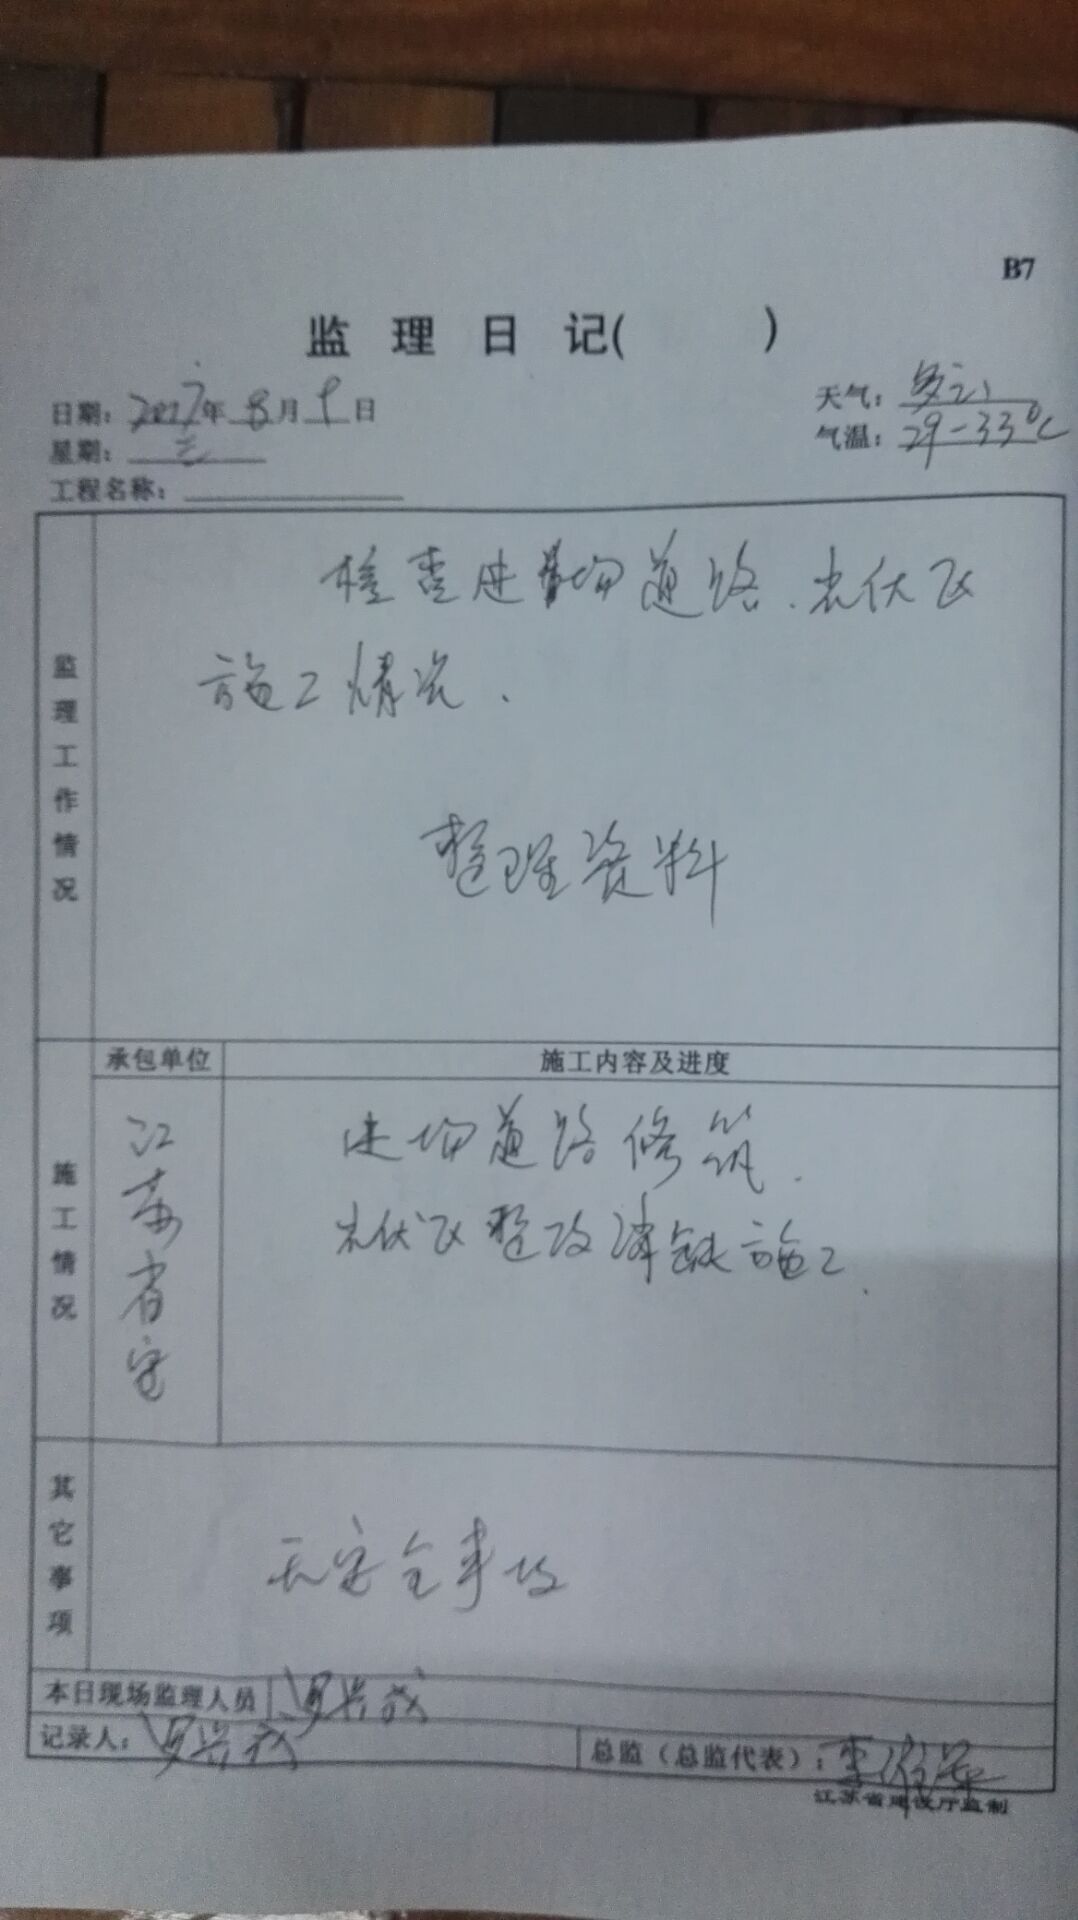 B7
监理日记( )
日期：2017年8月9日
天气：多云
星期：三
气温：29-33℃
工程名称：
监理工作情况
检查进场道路、光伏区
施工情况.
整理资料
承包单位
施工内容及进度
施工情况
江苏省安
进场道路修筑.
光伏区整改消缺施工.
其它事项
无安全事故
本日现场监理人员
记录人：
总监（总监代表）：李
江苏省建设厅监制